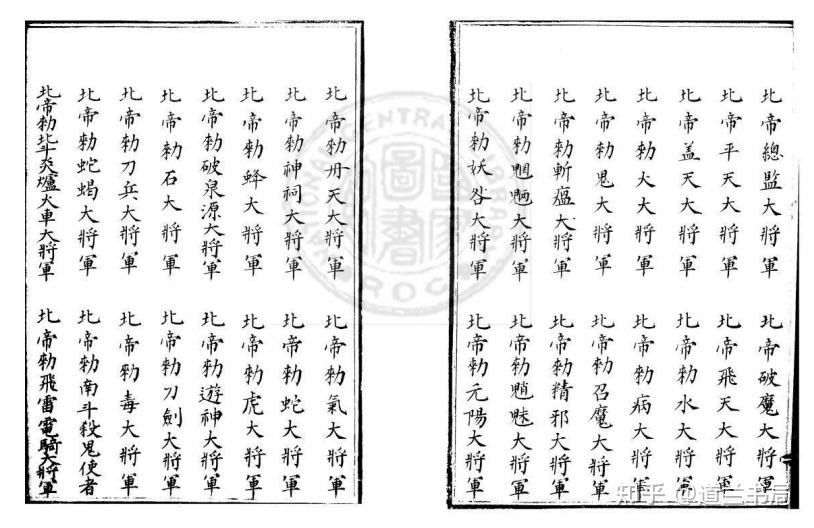 北帝總監大將軍 北帝破魔大將軍
北帝平天大將軍 北帝飛天大將軍
北帝盖天大將軍 北帝勑水大將軍
北帝勑火大將軍 北帝勑病大將軍
北帝勑鬼大將軍 北帝勑召魔大將軍
北帝勑斬瘟大將軍 北帝勑精邪大將軍
北帝勑大將軍 北帝勑魈魅大將軍
北帝勑妖咎大將軍 北帝勑元陽大將軍
北帝勑天大將軍 北帝勑氣大將軍
北帝勑神祠大將軍 北帝勑蛇大將軍
北帝勑蜂大將軍 北帝勑虎大將軍
北帝勑破泉源大將軍 北帝勑遊神大將軍
北帝勑石大將軍 北帝勑刀劍大將軍
北帝勑刀兵大將軍 北帝勑毒大將軍
北帝勑蛇蝎大將軍 北帝勑南斗殺鬼使者
北帝勑北斗炎爐火車大將軍 北帝勑飛雷電騎大將軍
知乎 @道兰书局